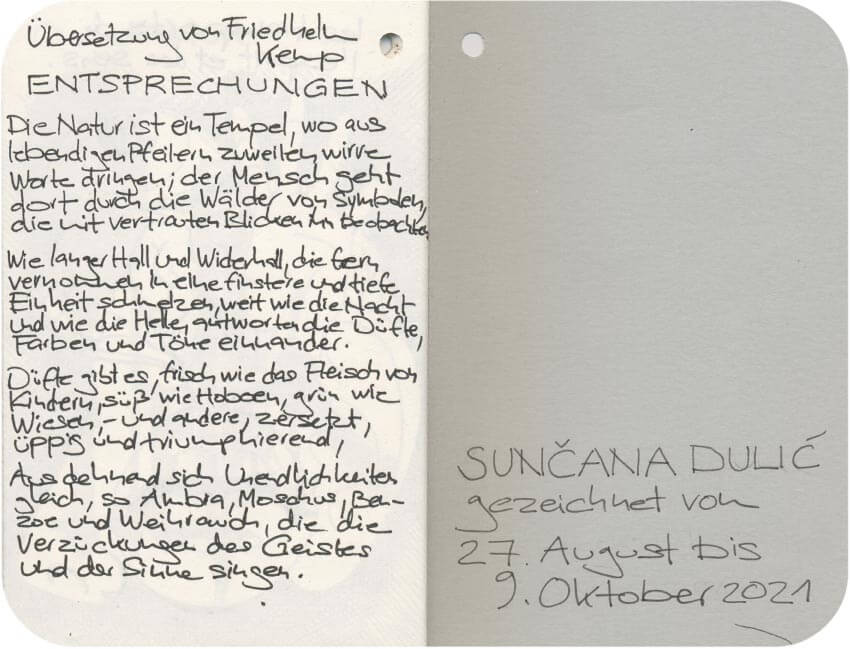 Übersetzung von Friedhelm
Kemp
ENTSPRECHUNGEN
Die Natur ist ein Tempel, wo aus
lebendigen Pfeilern zuweilen wirre
Worte dringen; der Mensch geht
dort durch die Wälder von Symbolen,
die mit vertrauten Blicken ihn beobachten
Wie langer Hall und Widerhall, die fern
vernommen in eine finstere und tiefe
Einheit schmelzen, weit wie die Nacht
und wie die Helle, antworten die Düfte,
Farben und Töne einander.
Düfte gibt es, frisch wie das Fleisch von
Kindern, süß wie Hoboen, grün wie
Wiesen, – und andere, zersetzt,
üppig und triumphierend,
Ausdehnend sich Unendlichkeiten
gleich, so Ambra, Moschus, Ben-
zoe und Weihrauch, die die
Verzückungen des Geistes
und der Sinne singen.
SUNČANA DULIĆ
gezeichnet von
27. August bis
9. Oktober 2021